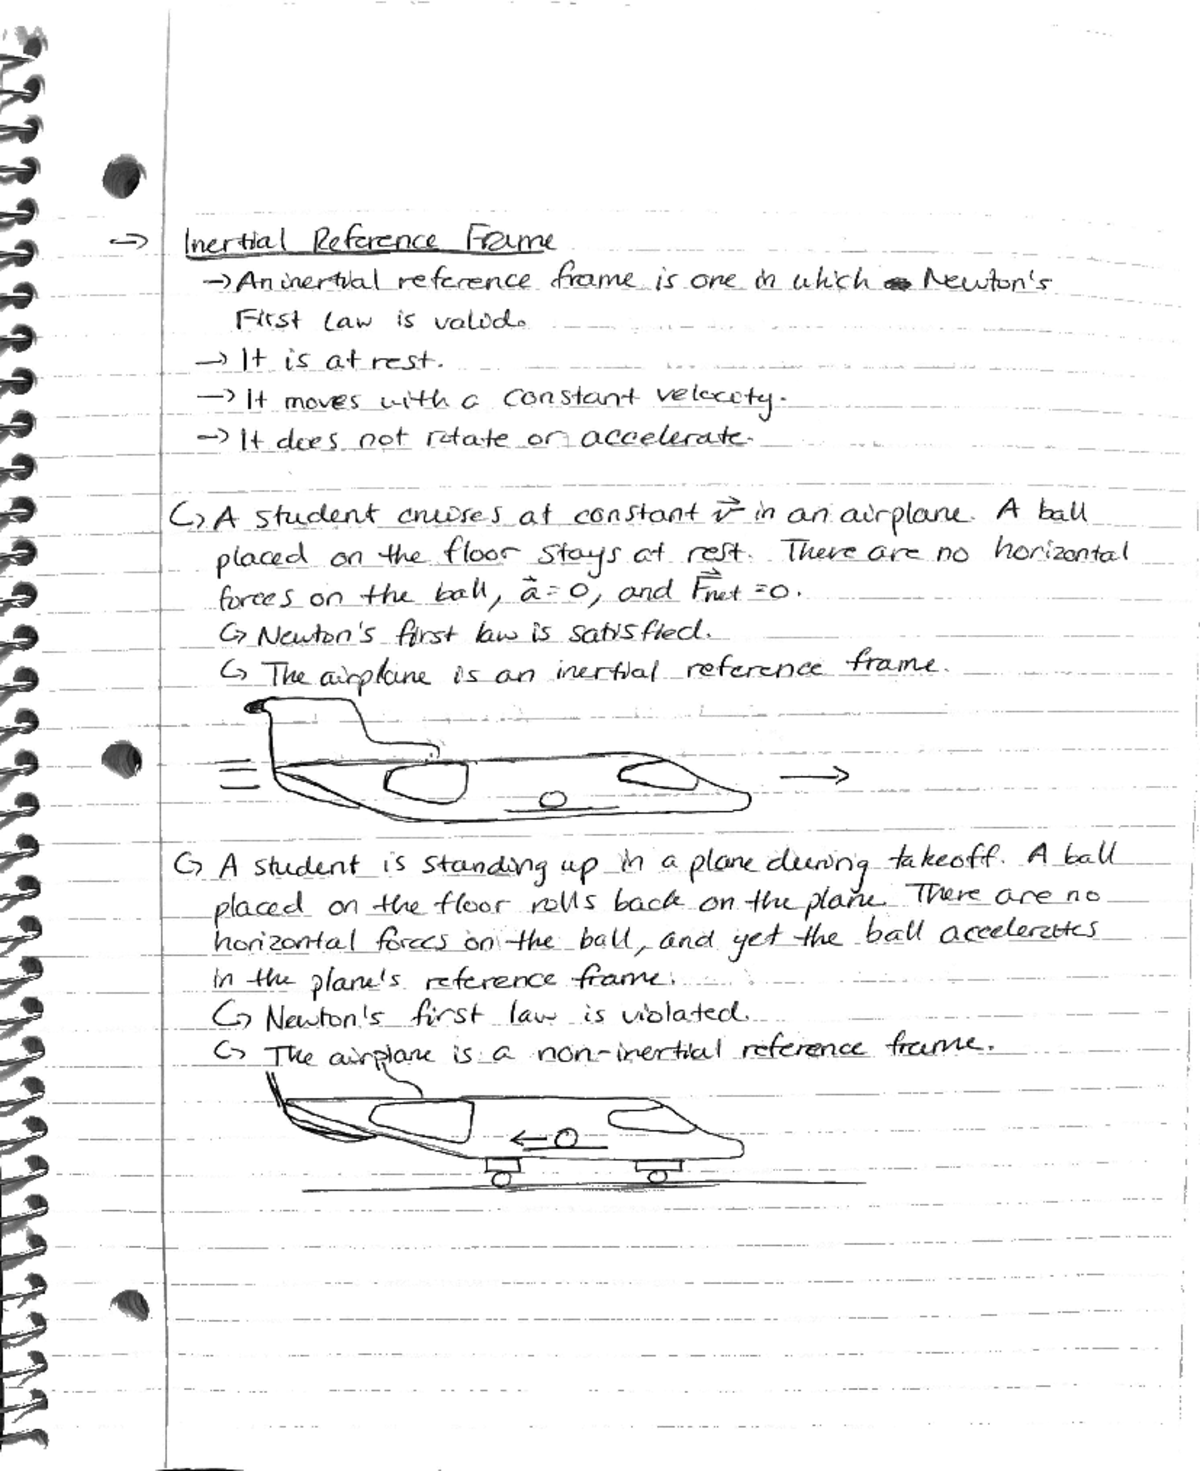 → Inertial Reference Frame
→ An inertial reference frame is one in which Newton's
First Law is valid.
→ It is at rest.
→ It moves with a constant velocity.
→ It does not rotate or accelerate.
↪ A student cruises at constant v⃗ in an airplane. A ball
placed on the floor stays at rest. There are no horizontal
forces on the ball, a⃗ = 0, and F⃗net = 0.
↪ Newton's first law is satisfied.
↪ The airplane is an inertial reference frame.
↪ A student is standing up in a plane during takeoff. A ball
placed on the floor rolls back on the plane. There are no
horizontal forces on the ball, and yet the ball accelerates
in the plane's reference frame.
↪ Newton's first law is violated.
↪ The airplane is a non-inertial reference frame.